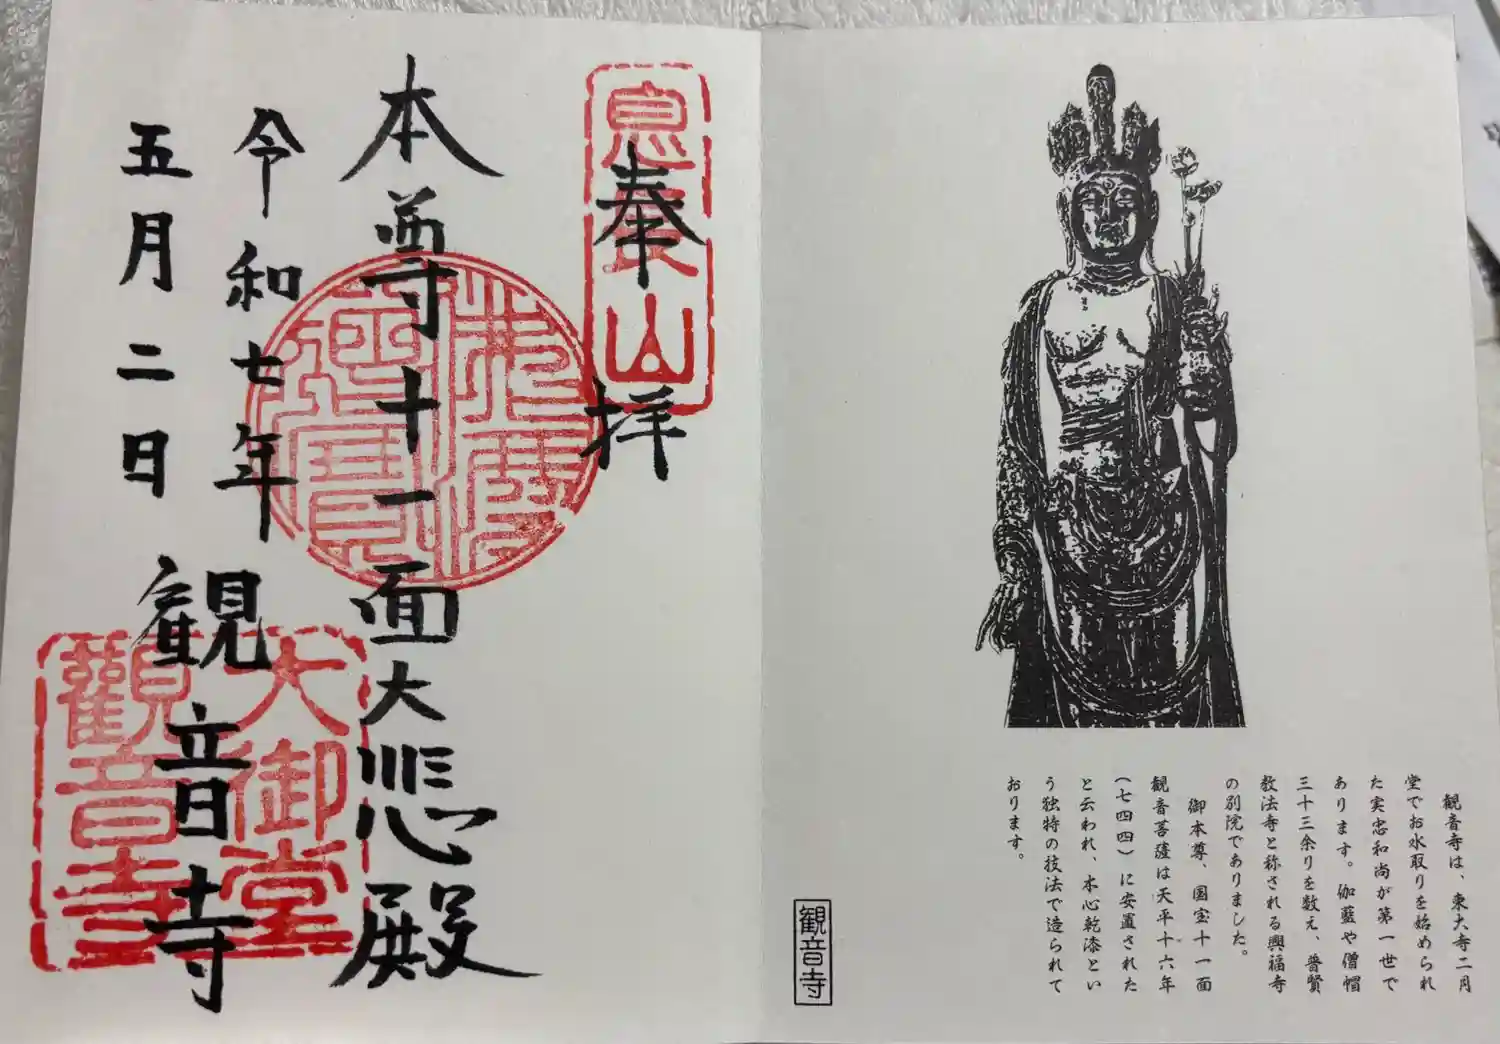 観音寺は、東大寺二月
堂でお水取りを始められ
た実忠和尚が第一世で
あります。伽藍や僧帽
三十三余りを数え、普賢
教法寺と称される興福寺
の別院でありました。
御本尊、国宝十一面
観音菩薩は天平十六年
(七四四)に安置された
と云われ、木心乾漆とい
う独特の技法で造られて
おります。
観音寺
息長山
奉拝
本尊十一面大悲殿
令和七年
五月二日
観音寺
大御堂
觀音寺